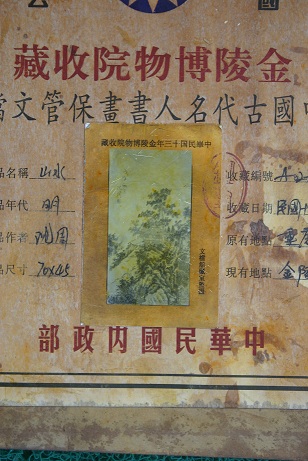 國
金陵博物院收藏
國古代名人書畫保管文
中華民国十三年金陵博物院收藏
品名稱 山水
品年代 明
品作者 沈周
品尺寸 70x45
收藏編號
收藏日期 民國
原有地點
現有地點 金
中華民國内政部